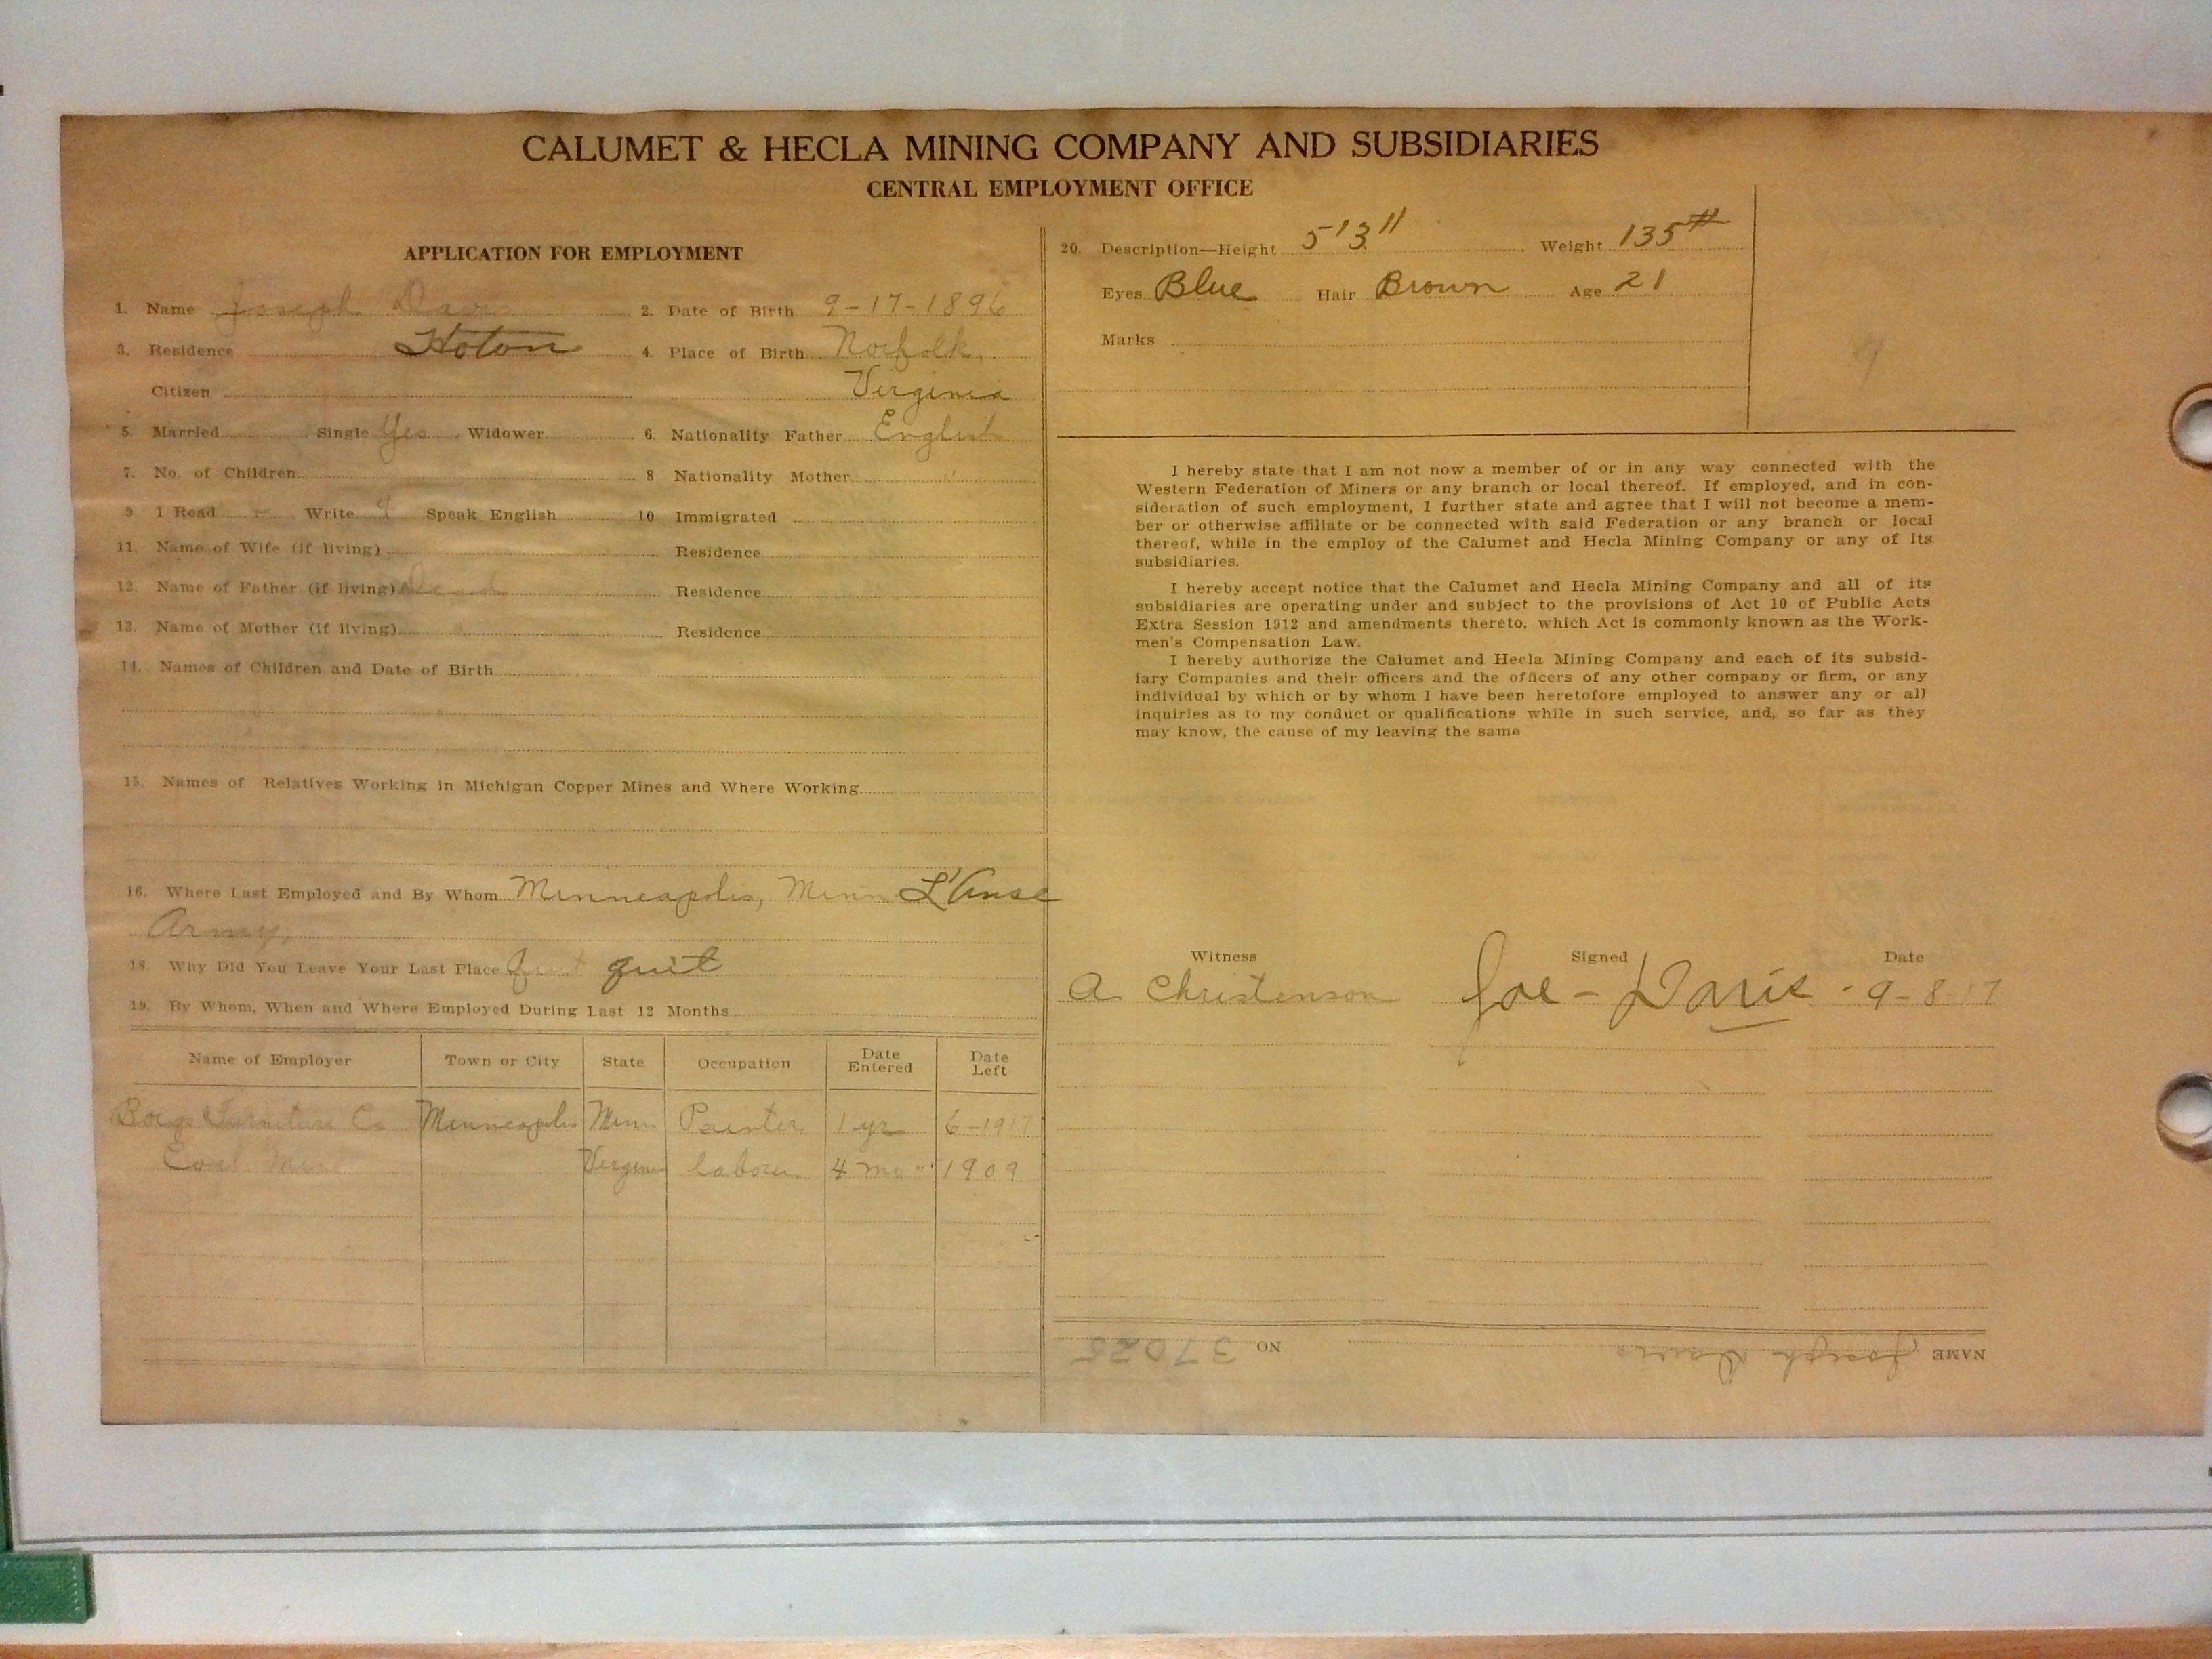 CALUMET & HECLA MINING COMPANY AND SUBSIDIARIES
CENTRAL EMPLOYMENT OFFICE
APPLICATION FOR EMPLOYMENT
1. Name Joseph Davis 2. Date of Birth 9-17-1896
3. Residence Hoton 4. Place of Birth Norfolk,
Citizen Verginia
5. Married Single Yes Widower 6. Nationality Father English
7. No. of Children 8 Nationality Mother "
9. I Read Write Speak English 10 Immigrated
11. Name of Wife (if living) Residence
12. Name of Father (if living) Dead Residence
13. Name of Mother (if living) Residence
14. Names of Children and Date of Birth
15. Names of Relatives Working in Michigan Copper Mines and Where Working
16. Where Last Employed and By Whom Minneapolis, Minn L'Anse
Army,
18. Why Did You Leave Your Last Place Quit quit
19. By Whom, When and Where Employed During Last 12 Months
Name of Employer Town or City State Occupation Date Entered Date Left
Furniture Co Minneapolis Minn Painter 1 yr 6-1917
Coal Mine Vergina laborer 4 mo 1909
20. Description—Height 5'3" Weight 135#
Eyes Blue Hair Brown Age 21
Marks
I hereby state that I am not now a member of or in any way connected with the
Western Federation of Miners or any branch or local thereof. If employed, and in con-
sideration of such employment, I further state and agree that I will not become a mem-
ber or otherwise affiliate or be connected with said Federation or any branch or local
thereof, while in the employ of the Calumet and Hecla Mining Company or any of its
subsidiaries.
I hereby accept notice that the Calumet and Hecla Mining Company and all of its
subsidiaries are operating under and subject to the provisions of Act 10 of Public Acts
Extra Session 1912 and amendments thereto, which Act is commonly known as the Work-
men's Compensation Law.
I hereby authorize the Calumet and Hecla Mining Company and each of its subsid-
iary Companies and their officers and the officers of any other company or firm, or any
individual by which or by whom I have been heretofore employed to answer any or all
inquiries as to my conduct or qualifications while in such service, and, so far as they
may know, the cause of my leaving the same
Witness Signed Date
A Christenson Joe - Davis - 9-8-17
NAME Joseph Davis NO 37025